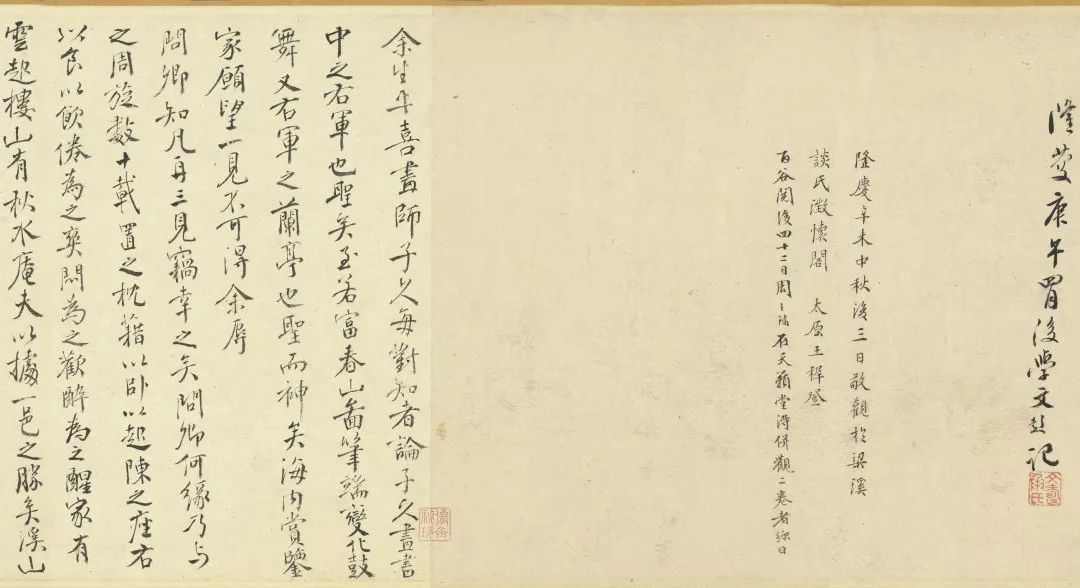 隆慶庚午四月後學文彭記
隆慶辛未中秋後三日敬觀於梁溪
談氏澂懷閣　太原王穉登
百谷閱後四十二日周天球在天籟堂得併觀二卷者弥日
余生平喜畫師子久每對知者論子久畫書
中之右軍也聖矣至若富春山圖筆端變化鼓
舞又右軍之蘭亭也聖而神矣海內賞鑒
家願望一見不可得余辱
問卿知凡再三見竊幸之矣問卿何緣乃与
之周旋數十載置之枕藉以卧以起陳之座右
以食以飲倦為之爽悶為之歡醉為之醒家有
雲起樓山有秋水菴夫以據一邑之勝矣溪山